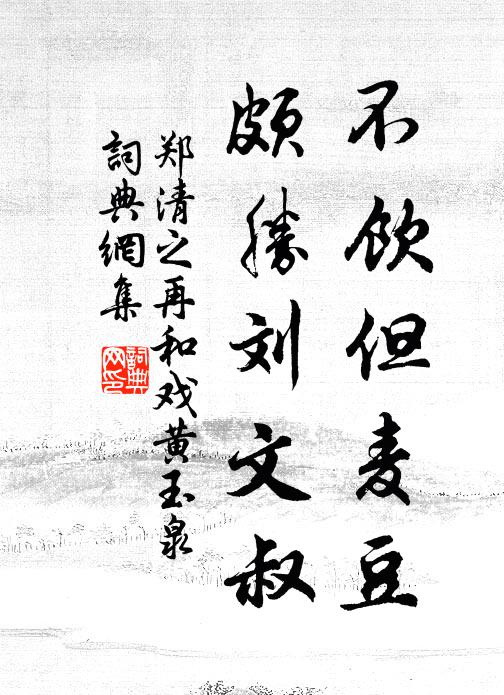 不饮但麦豆
颇勝刘文叔
郑清之再和戏黄玉泉
詞典網集
詞典
网印